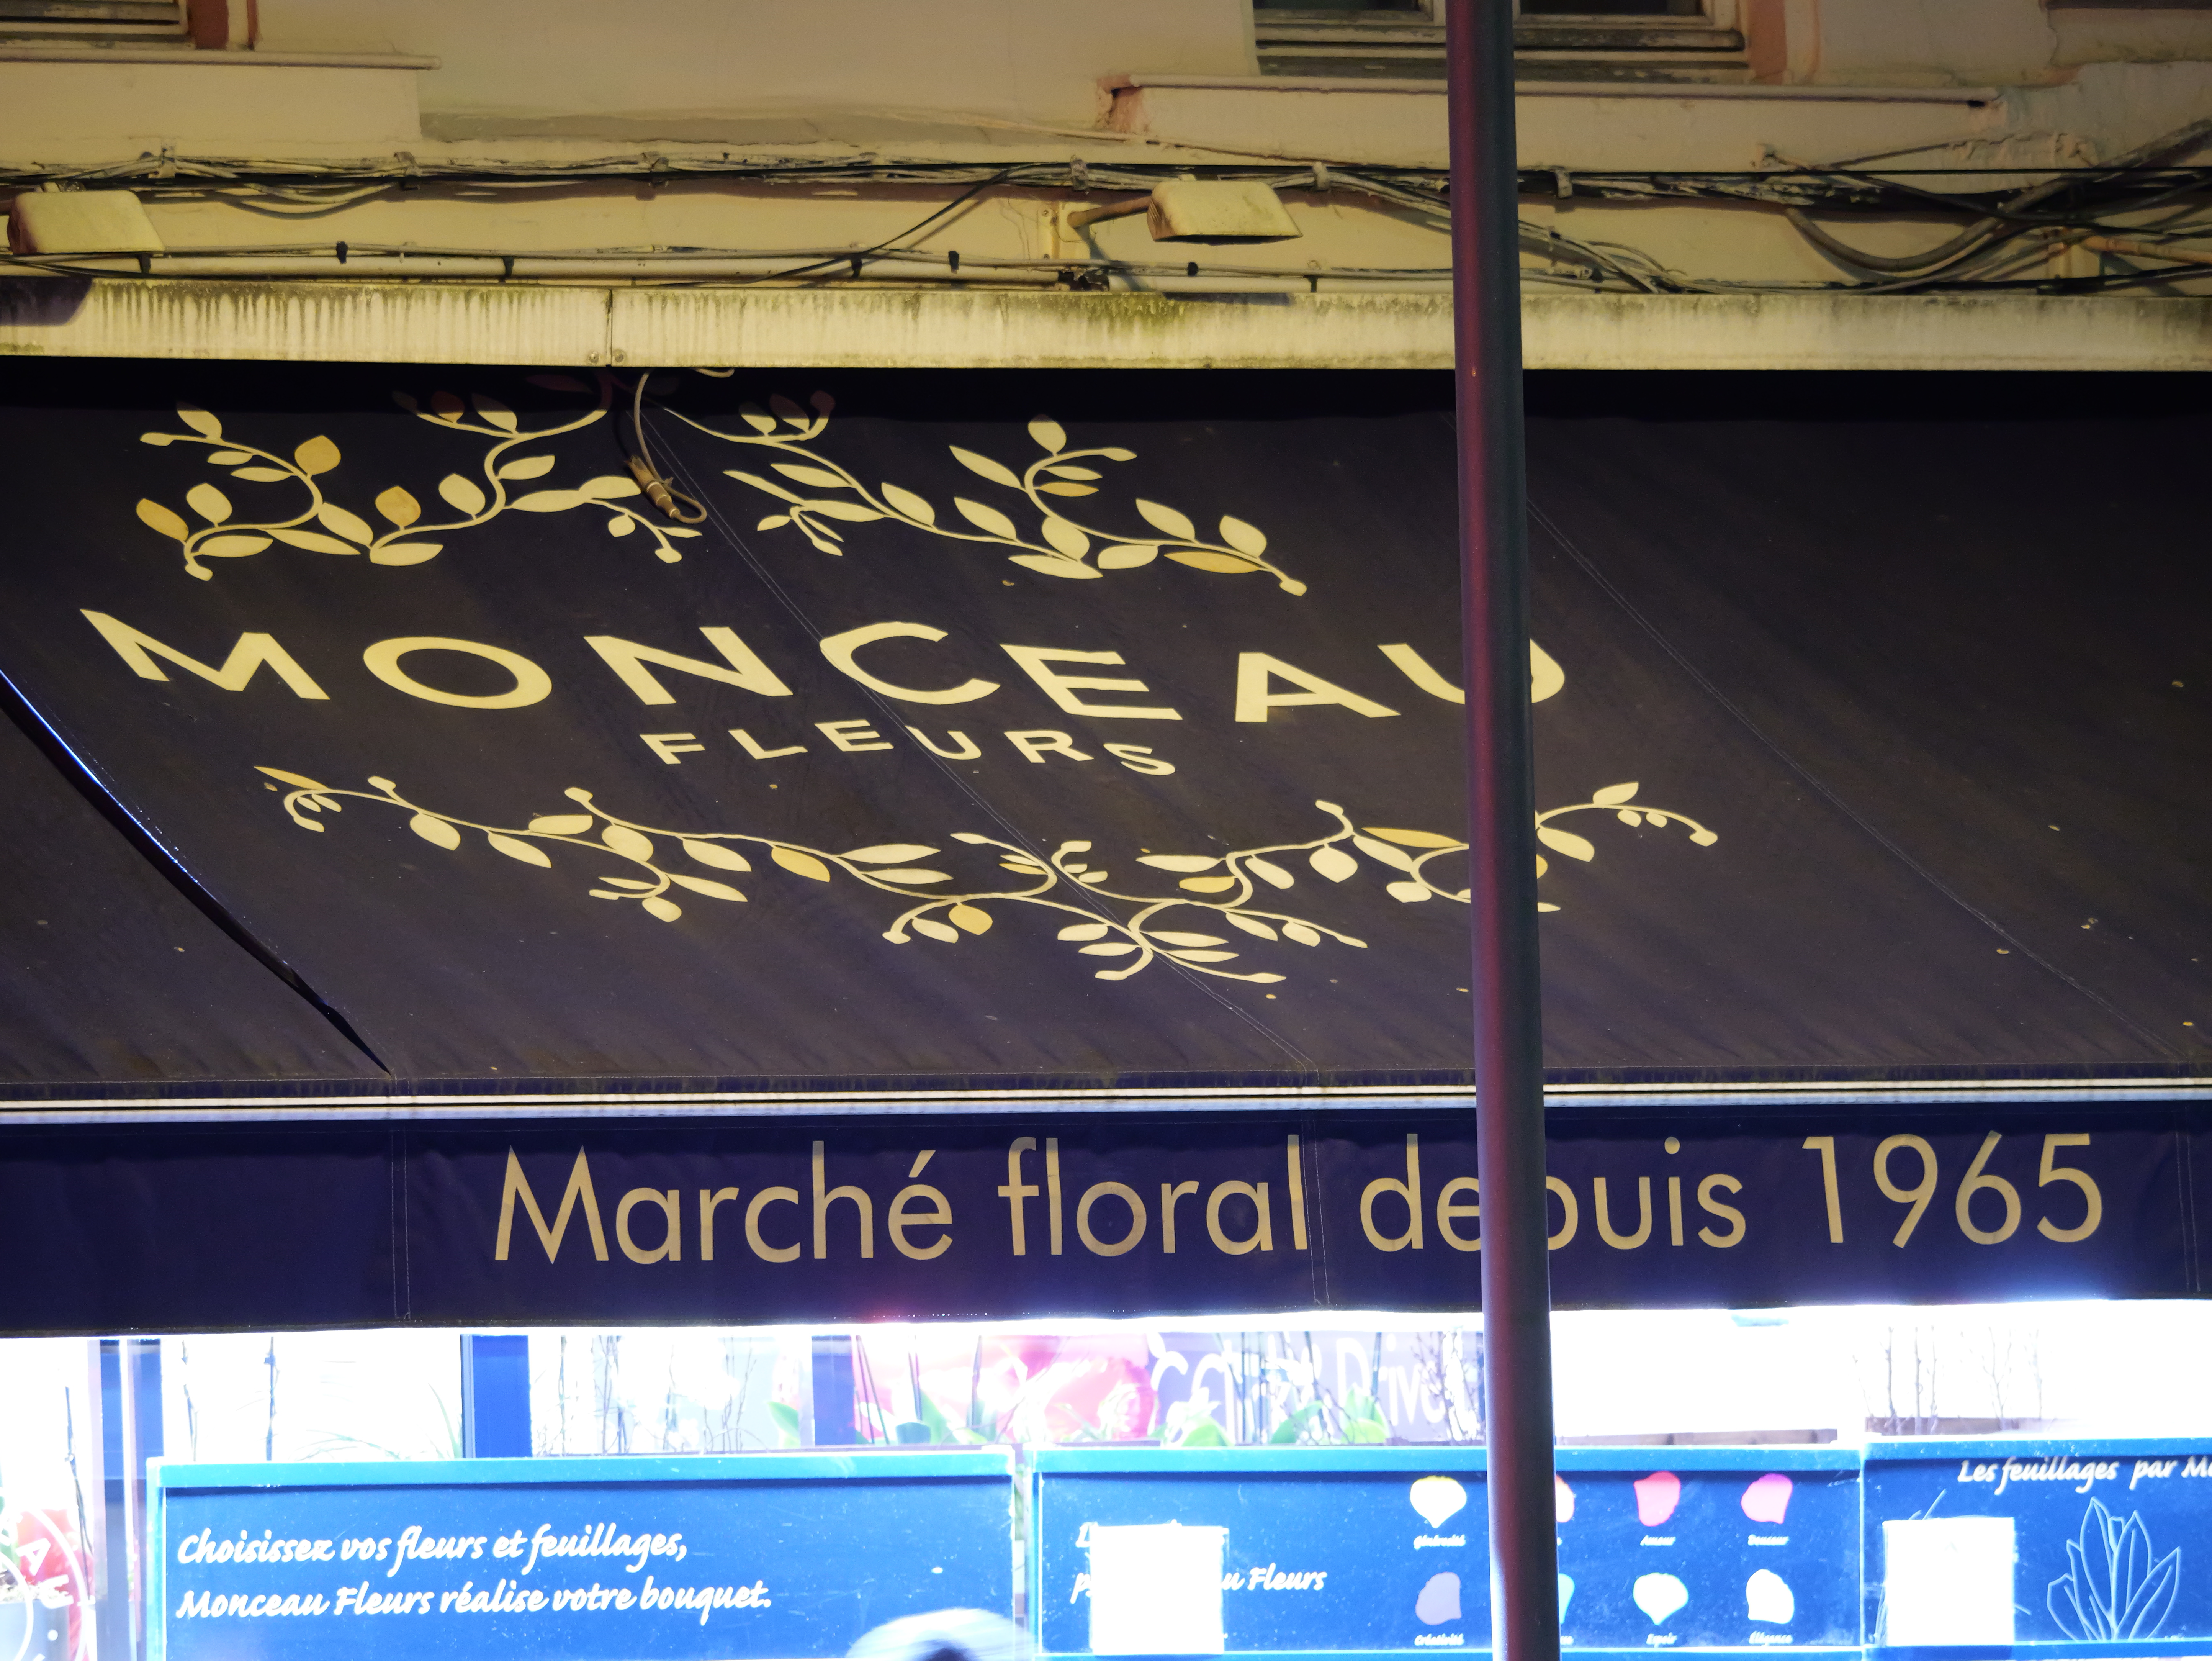 MONCEAU
FLEURS
Marché floral depuis 1965
Choisissez vos fleurs et feuillages,
Monceau Fleurs réalise votre bouquet.
Fleurs
Générosité
Amour
Douceur
Créativité
Espoir
Élégance
Les feuillages par